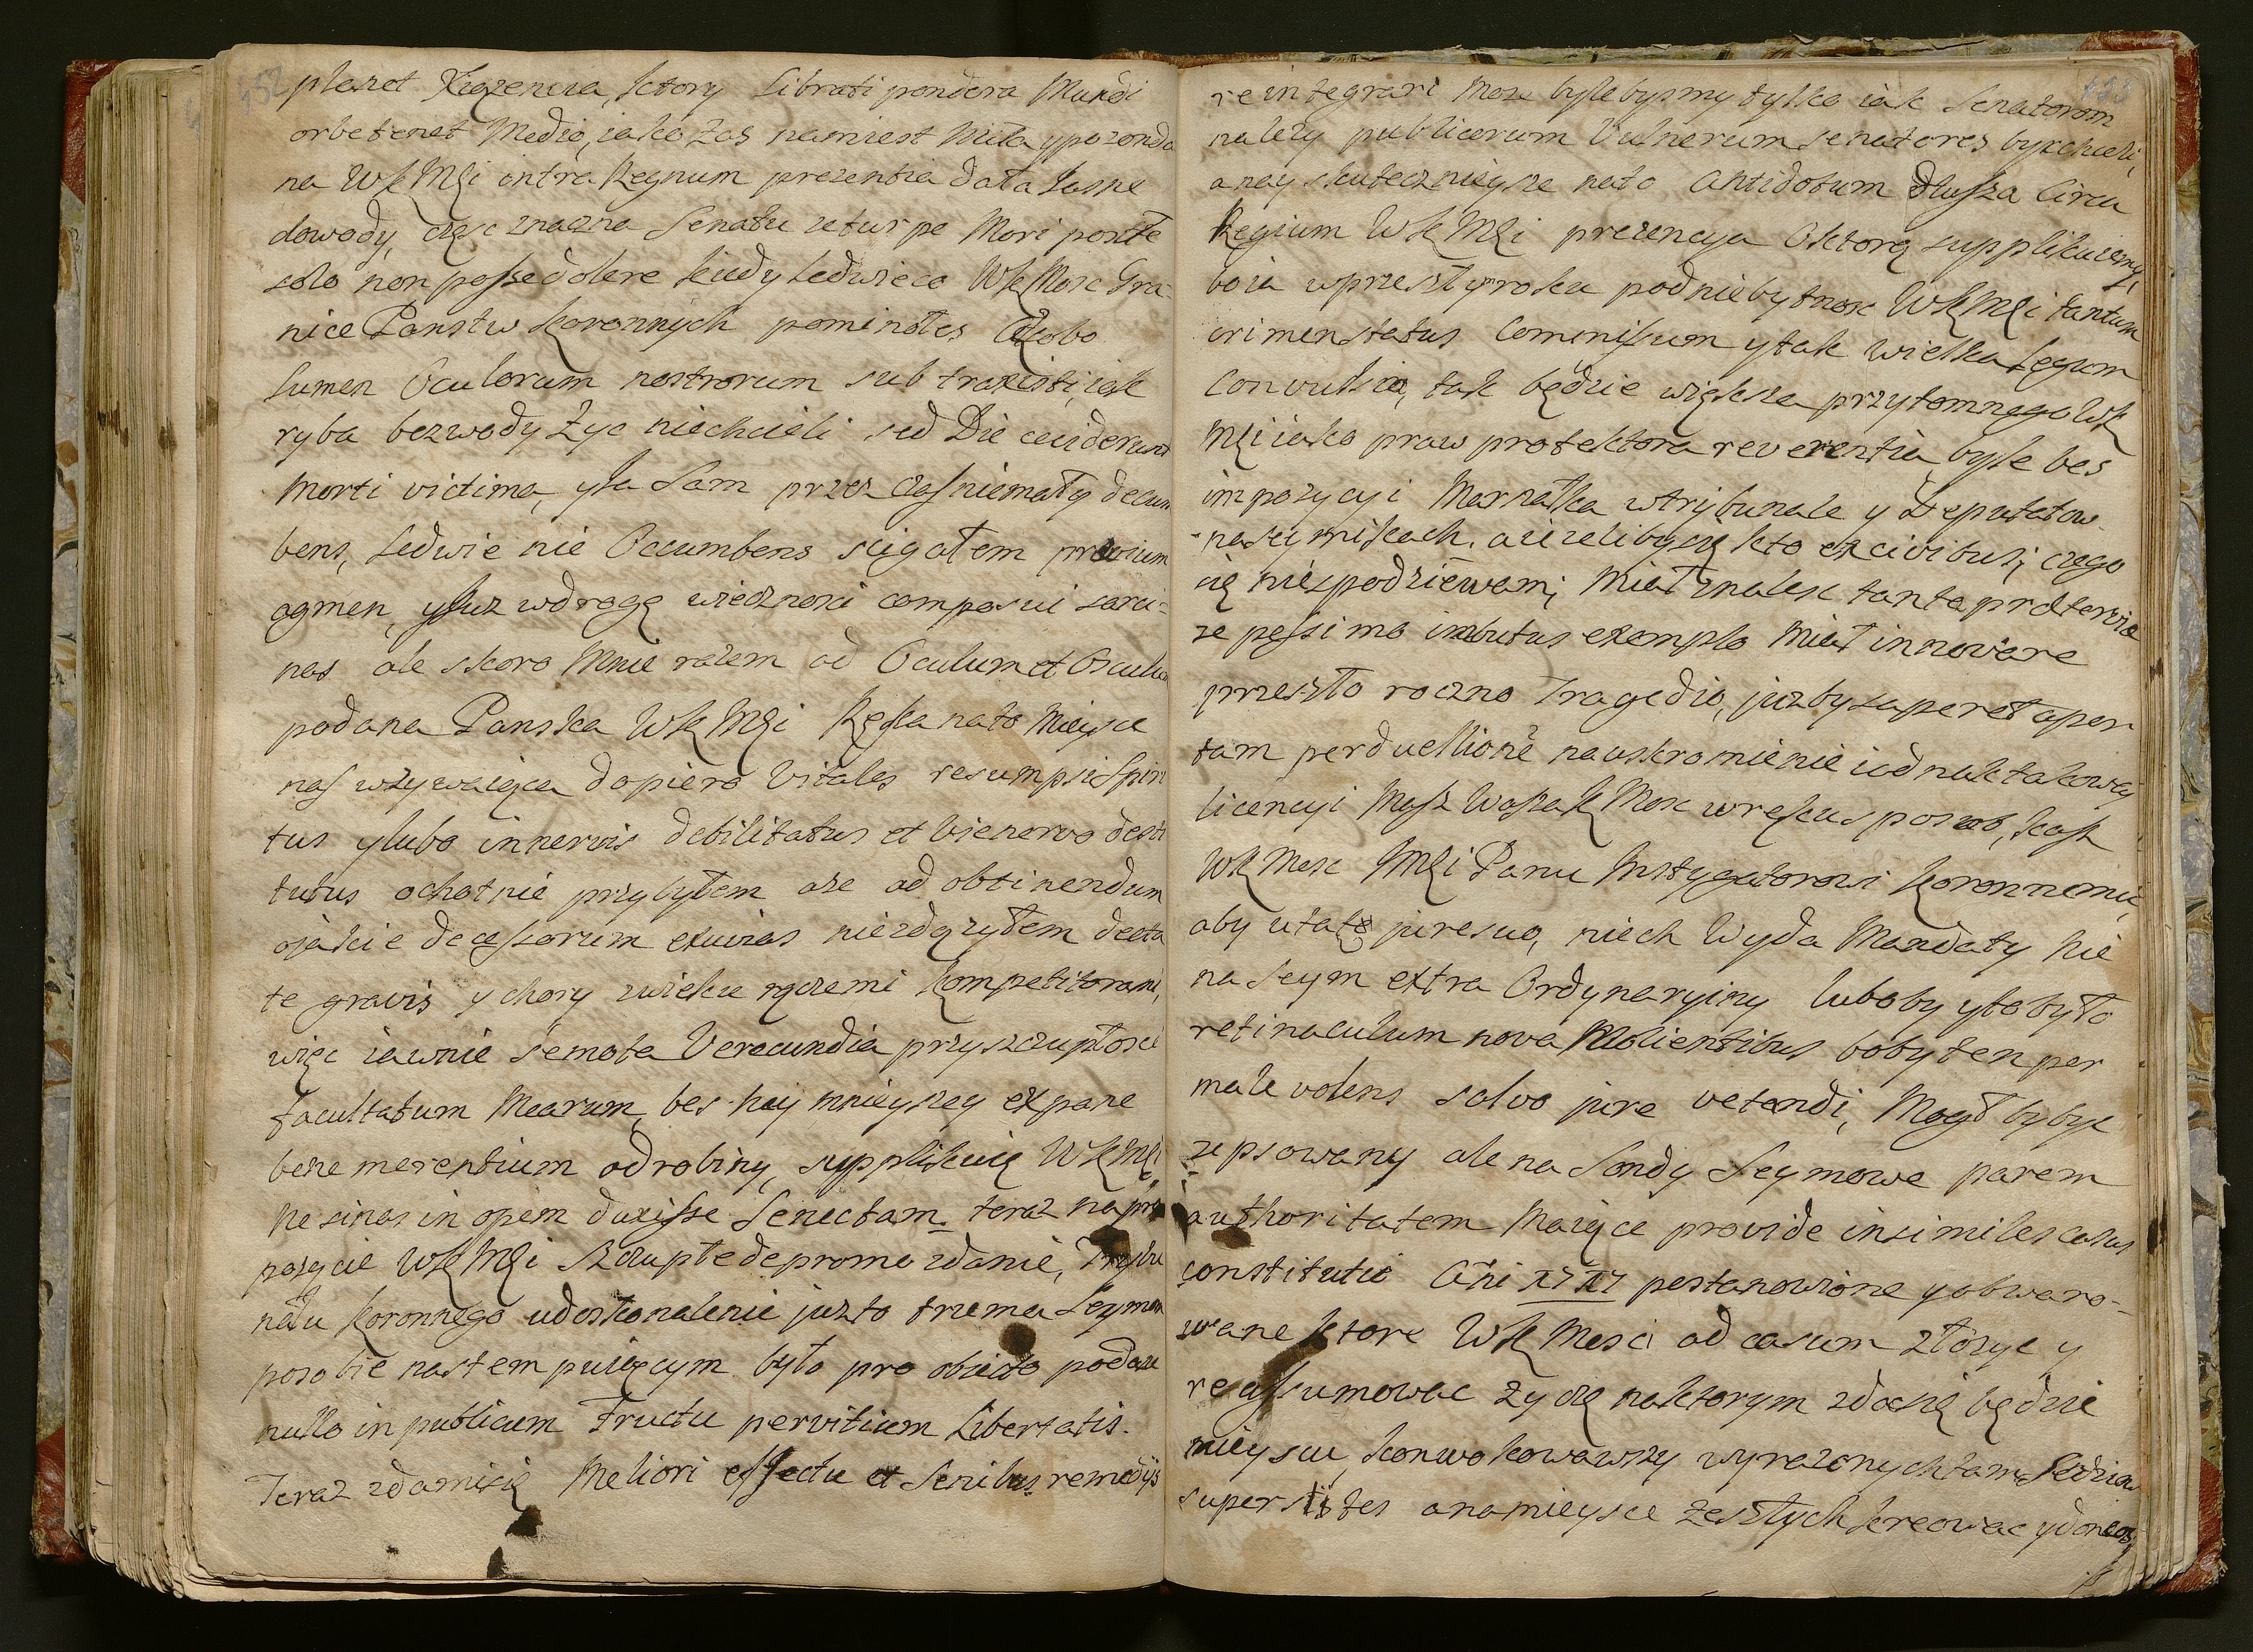 152
planet Xiązencia, ktory Librati pondera Mundi
orbe tenet Medio, iako zas namiest Miła ypozonda
na WKMCi intra Regnum prezentia data Jasne
dowody, częsc znaczna Senatu ze turpe Mori poste
solo non posse dolere kiedy ledwieco WKMosc Gra-
nice Panstw Koronnych pominołes Albo
Lumen Oculorum nostrorum subtraxisti, iak
ryba bezwody Zyc niechcieli sed Die
morti victima, yIa Sam przez czas niemały decum
bens, ledwie nie Occumbens scigałem prævium
agmen, yIusz wdrogę wiecznosci composui sarci-
nas ale skoro Mnie razem ad Oculum et Osculum
podana Panska WKMCi Ręka nato Mieysce
nas wzywaiąca dopiero Vitales resumpsi Spiri
tus ylubo in nervis debilitatus et destitutus
tutus ochotnie przybyłem aże ad obtinendum
iakie decessorum exuvias niezdązyłem æeta
te gravis y chory zwieku rączemi Kompetitorami,
więc iawnie semota Verecundia przyszczupłosci
facultatum Mearum, bes naymnieyszey ex pane
bene merentium odrobiny, supplikuię WKMCi
ne sinas in opem duxisse Senectam. teraz na pro
pozycie WKMCi szczupłe depromo zdanie, Trybu
nału Koronnego udoskonalenie juzto trzema Seymom
posobie nastempuiącym było pro obiecto podane
nullo in publicum Fructu pervitium Libertatis.
Teraz zdamisię Meliori effectu et Senibus remedijs
reintegrari Moze bylebysmy tylko iak Senatorom
nalezy publicorum Vulnerum senatores bycchcieli,
anay skutecznieysze nato Antidotum dłusza Circa
Regium WKMCi prezencya Oktorą supplikuiemy,
boia wprzeszłymroku podniebytnosc WKMCi tantum
crimen status Commissum ytak wielka Legum
Convulsia, tak będzie większa przytomnego WK
MCi iako praw protektora reverentia, byle bes
impozycyi Marszałka wtrijbunale y Deputatow
naseymikach. a iezelibysię kto ex civibus, czego
się niespodziewam, Miał znalesc tanta protervia
ze pessimo imbutus exemplo Miał innovare
przeszło roczno Tragedio, juzby saperet aper
tam perduellione nauskromienie iednak takowey
licencyi Masz Wasza K Mosc wręku sposob, kasz
WKMosc JMCi Panu Instygatorowi Koronnemu,
aby utatur jure suo, niech Wyda Mandaty nie
na Seym extra Ordynaryiny luboby yto było
retinaculum nova Molientibus boby ten per
male volens salvo jure vetandi, Mogł bybyc
zepsowany ale na Sondy Seymowe parem
authoritatem Maiące provide in similes casus
constitutio Ani 1717 postanowione yobwaro-
wane ktore WKMosci ad casum złozyc y
reassumowac zyczę naktorym zdasię będzie
mieyscu, konwokowawszy wyrazonychtam Sędziow
superstites anamieysce zeszłych kreowac ydoneos,